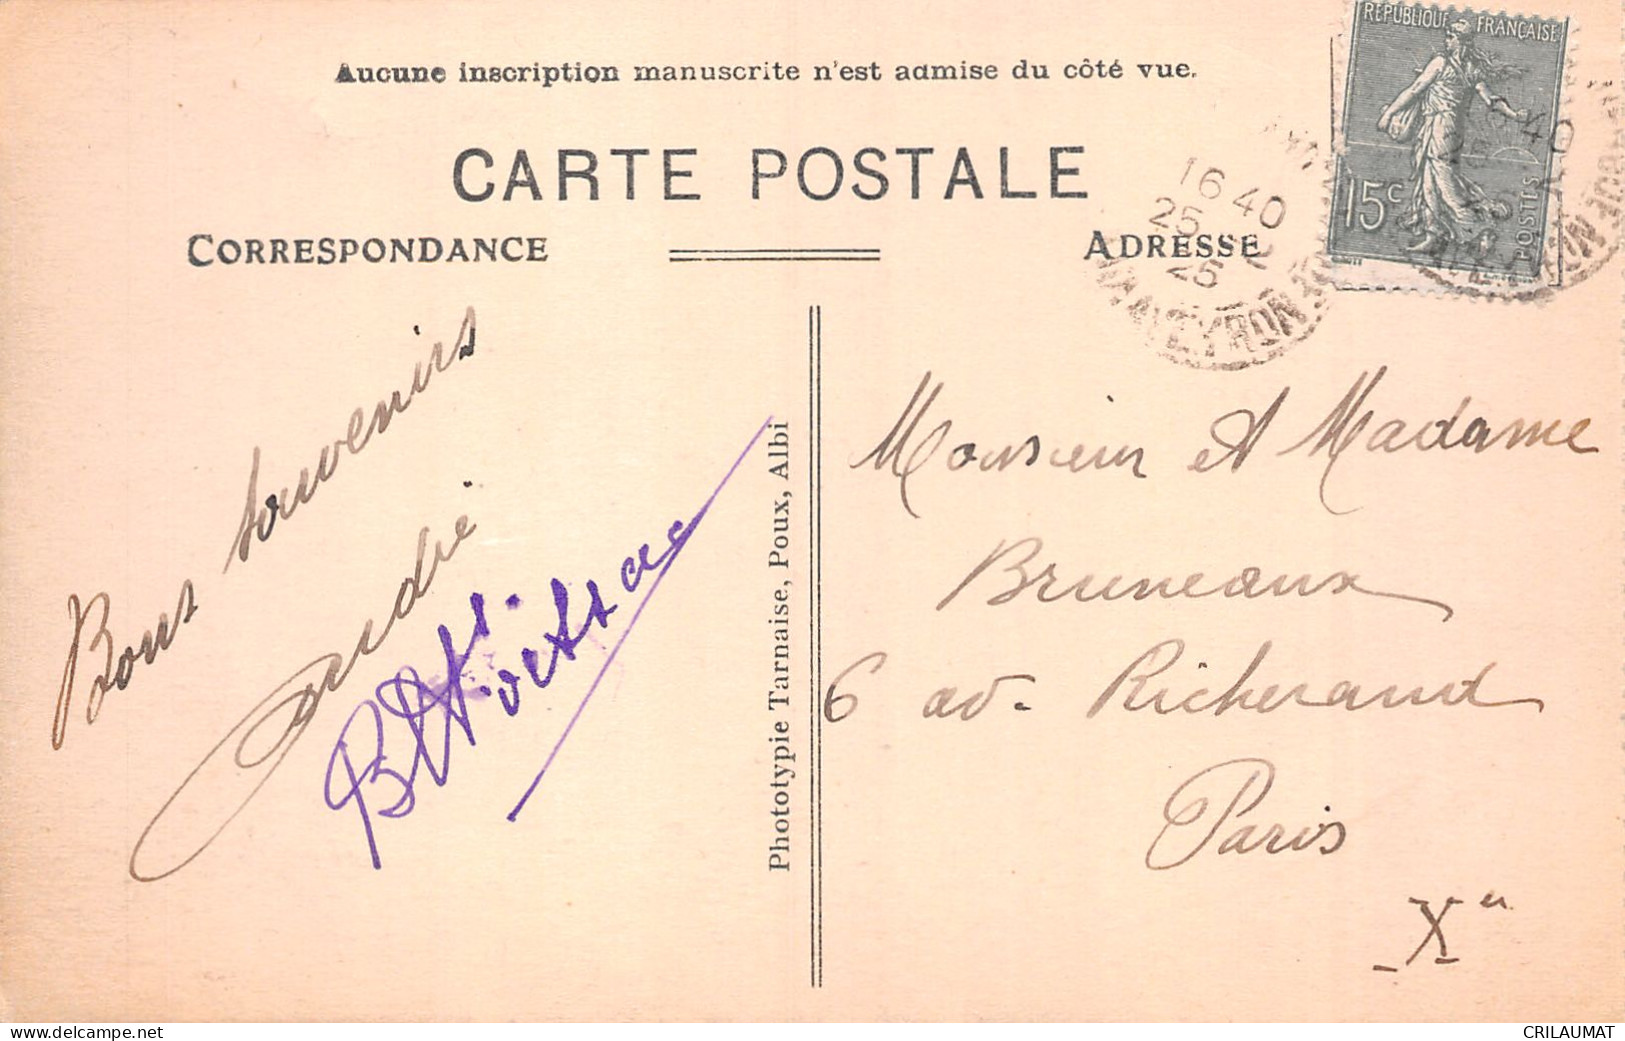 Aucune inscription manuscrite n'est admise du côté vue.
CARTE POSTALE
CORRESPONDANCE
ADRESSE
REPUBLIQUE FRANÇAISE
15c
POSTES
16 40
25
25
AVEYRON
Bons souvenirs
André
Phototypie Tarnaise, Poux, Albi
Monsieur et Madame
Bruneaux
6 av. Richerand
Paris
X
www.delcampe.net
CRILAUMAT